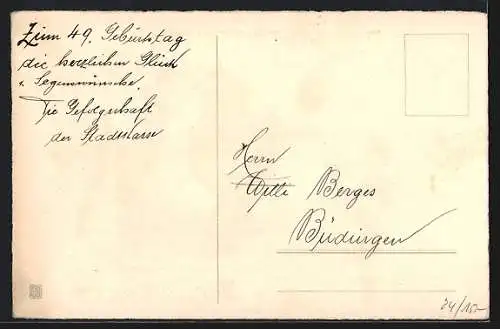 Zum 49. Geburtstag
die herzlichen Glück
u. Segenswünsche.
Die Gefolgschaft
der Stadtkasse
Herrn
Willi Berges
Büdingen
24/152